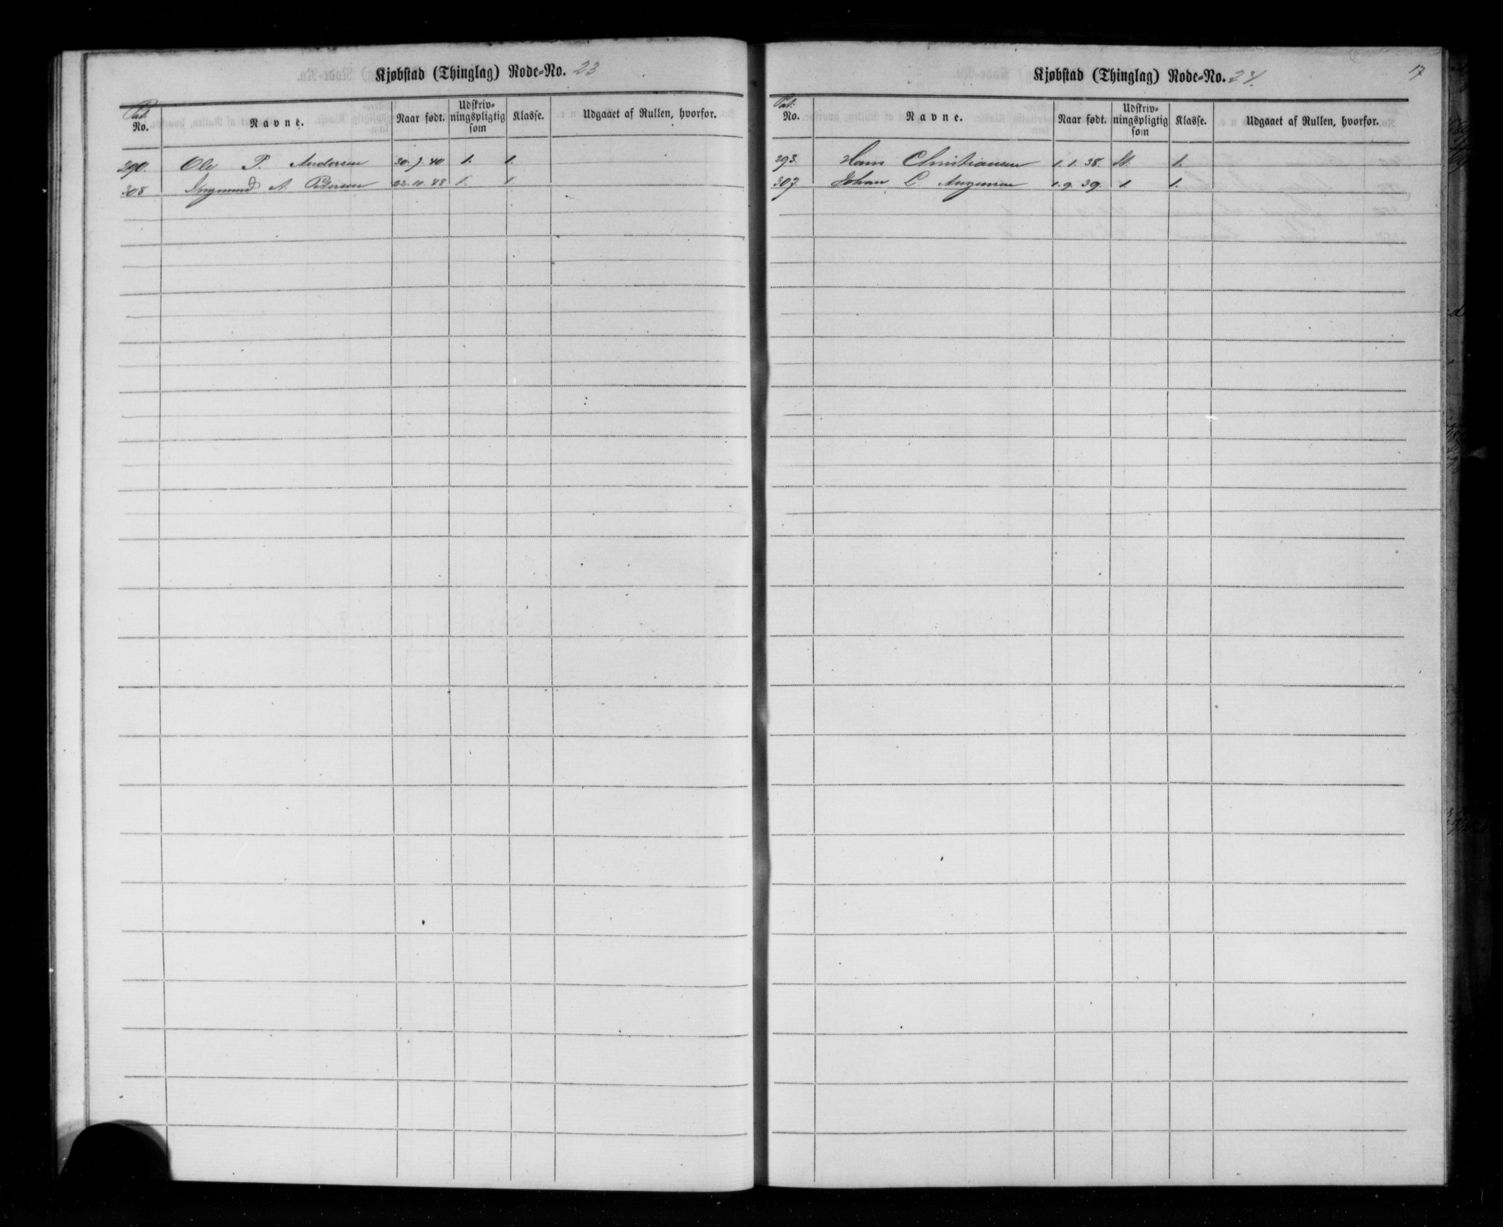 Kjøbstad (Thinglag) Rode-No. 23
Pat. No. Navne. Naar født. Udskrivningspligtig som Klasse. Udgaaet af Rullen, hvorfor.
290. Ole P. Andersen 30.7.40 1. 1.
308 Ingmund A. Pedersen 22.11.48 1. 1.
17
Kjøbstad (Thinglag) Rode-No. 24.
Pat. No. Navne. Naar født. Udskrivningspligtig som Klasse. Udgaaet af Rullen, hvorfor.
293. Hans Christiansen 1.1.38. 1.
307 Johan L 1.9.39. 1 1.